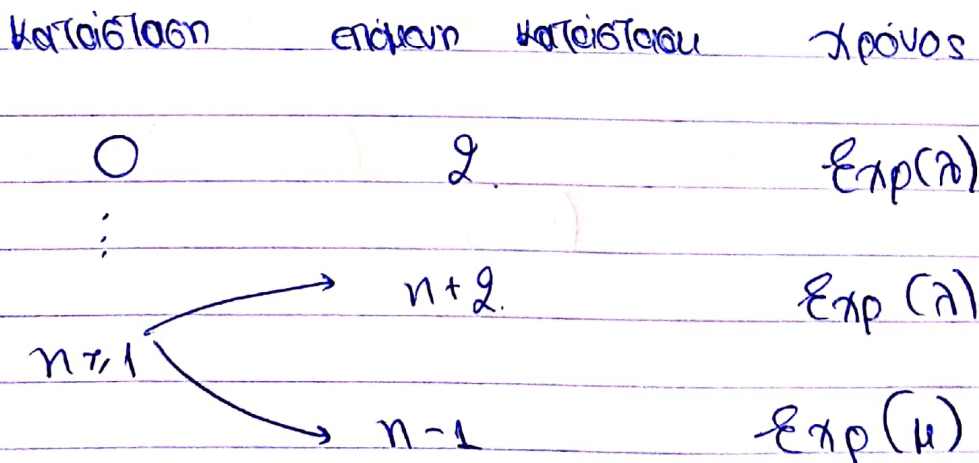 κατάσταση επόμενη κατάσταση χρόνος
0 2. Exp(λ)
⋮
n+2. Exp(λ)
n≥1
n-1 Exp(μ)